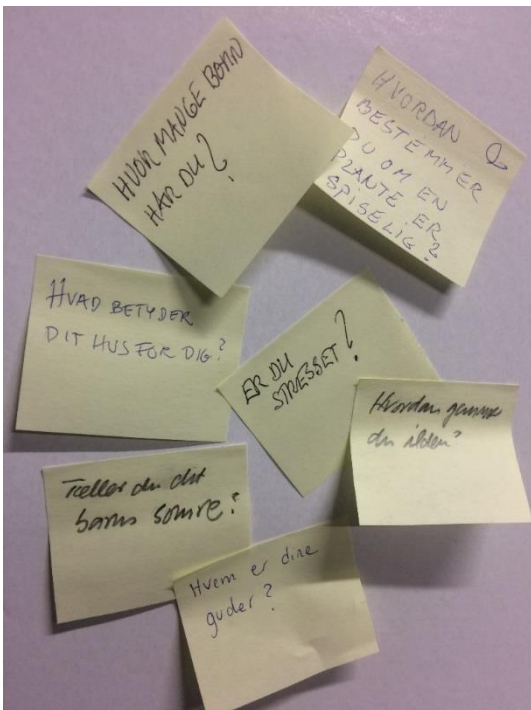 HVOR MANGE BØRN
HAR DU?
HVORDAN
BESTEMMER
DU OM EN
PLANTE ER
SPISELIG?
HVAD BETYDER
DIT HUS FOR DIG?
ER DU
STRESSET?
Hvordan gemmer
du ilden?
Tæller du dit
barns somre?
Hvem er dine
guder?